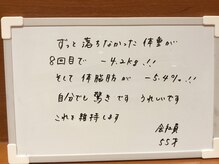 ずっと落ちなかった体重が
8回目で −4.2kg!!
そして体脂肪が −5.4%!!
自分でも驚きです うれしいです
これを維持します
55才